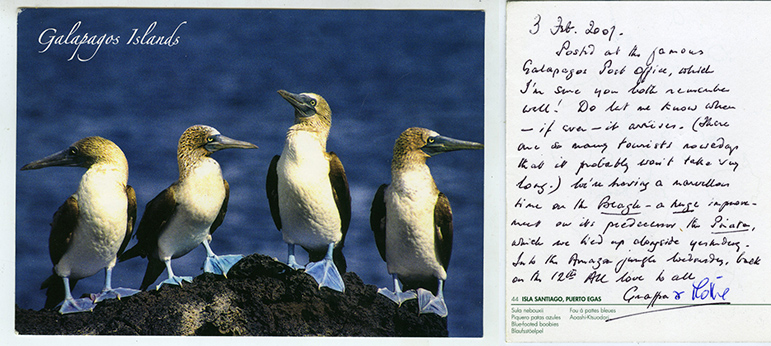 Galapagos Islands
3 Feb. 2009.
Posted at the famous
Galapagos Post Office, which
I'm sure you both remember
well! Do let me know when
– if ever – it arrives. (There
are so many tourists nowadays
that it probably won't take very
long.) We're having a marvellous
time on the Beagle – a huge improve-
ment on its predecessor, the
which we tied up alongside yesterday.
Into the Amazon jungle Wednesday, back
on the 12th All love to all
Grandpa &
44 ISLA SANTIAGO, PUERTO EGAS
Sula nebouxii
Piquero patas azules
Blue-footed boobies
Blaufusstoelpel
Fou à pattes bleues
Aoashi-Ktsuodori